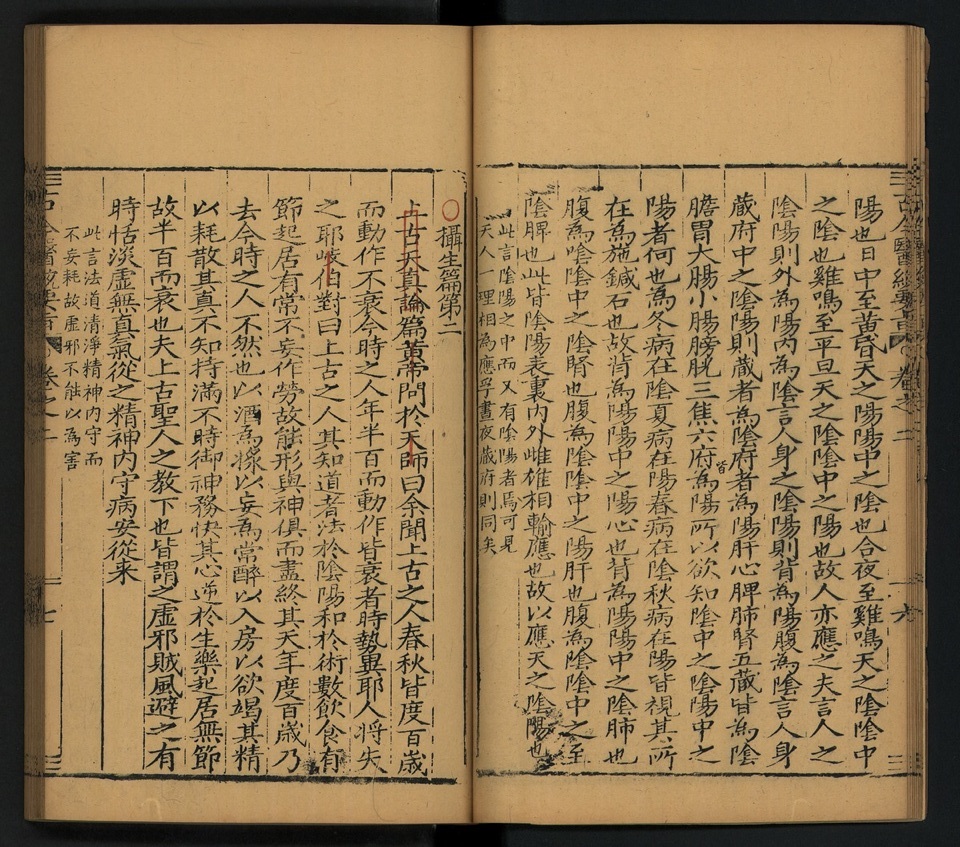 陽也日中至黃昏天之陽陽中之陰也合夜至雞鳴天之陰陰中
之陰也雞鳴至平旦天之陰陰中之陽也故人亦應之夫言人之
陰陽則外為陽內為陰言人身之陰陽則背為陽腹為陰言人身
藏府中之陰陽則藏者為陰府者為陽肝心脾肺腎五藏皆為陰
膽胃大腸小腸膀胱三焦六府皆為陽所以欲知陰中之陰陽中之
陽者何也為冬病在陰夏病在陽春病在陰秋病在陽皆視其所
在為施鍼石也故背為陽陽中之陽心也背為陽陽中之陰肺也
腹為陰陰中之陰腎也腹為陰陰中之陽肝也腹為陰陰中之至
陰脾也此皆陰陽表裏內外雌雄相輸應也故以應天之陰陽也
此言陰陽之中而又有陰陽者焉可見
天人一理相為應乎晝夜藏府則同矣
卷之二
六
攝生篇第二
上古天真論篇黃帝問於天師曰余聞上古之人春秋皆度百歲
而動作不衰今時之人年半百而動作皆衰者時勢異耶人將失
之耶岐伯對曰上古之人其知道者法於陰陽和於術數飲食有
節起居有常不妄作勞故能形與神俱而盡終其天年度百歲乃
去今時之人不然也以酒為漿以妄為常醉以入房以欲竭其精
以耗散其真不知持滿不時御神務快其心逆於生樂起居無節
故半百而衰也夫上古聖人之教下也皆謂之虛邪賊風避之有
時恬淡虛無真氣從之精神內守病安從来
此言法道清淨精神內守而
不妄耗故虛邪不能以為害
卷之二
七